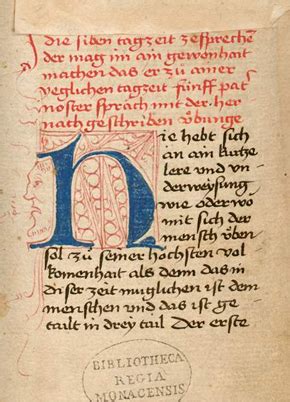 die siben tagzeit ze sprechen
der mag im ain gewonhait
machen das er zu ainer
yeglichen tagzeit fünff pat
noster sprach mit der her
nach geschriben übunge
Hie hebt sich
an ain kutze
lere und un
derweysung
wie oder wo
mit sich der
mensch üben
sol zü seiner höchsten vol
komenhait als denn das in
diser zeit muglichen ist dem
menschen und das ist ge
tailt in drey tail Der erste
BIBLIOTHECA
REGIA
MONACENSIS